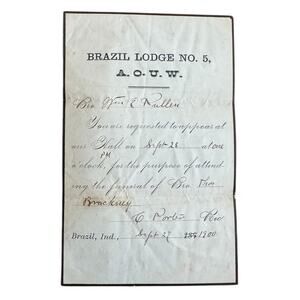 BRAZIL LODGE NO. 5,
A. O. U. W.
Bro Wm E Mullen
You are requested to appear at
our Hall on Sept 28 at one
PM
o'clock, for the purpose of attend
ing the funeral of Bro
Brackney
E Rec
Brazil, Ind., Sept 27 1900